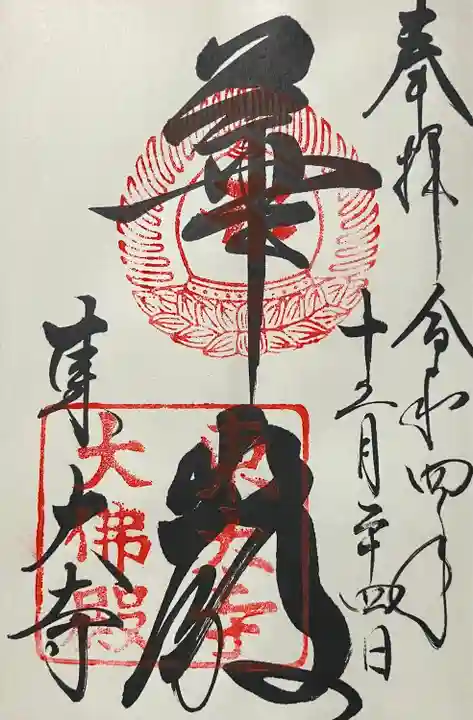 奉拝 令和四年
十二月二十四日
華厳
東大寺
大佛殿
東大寺